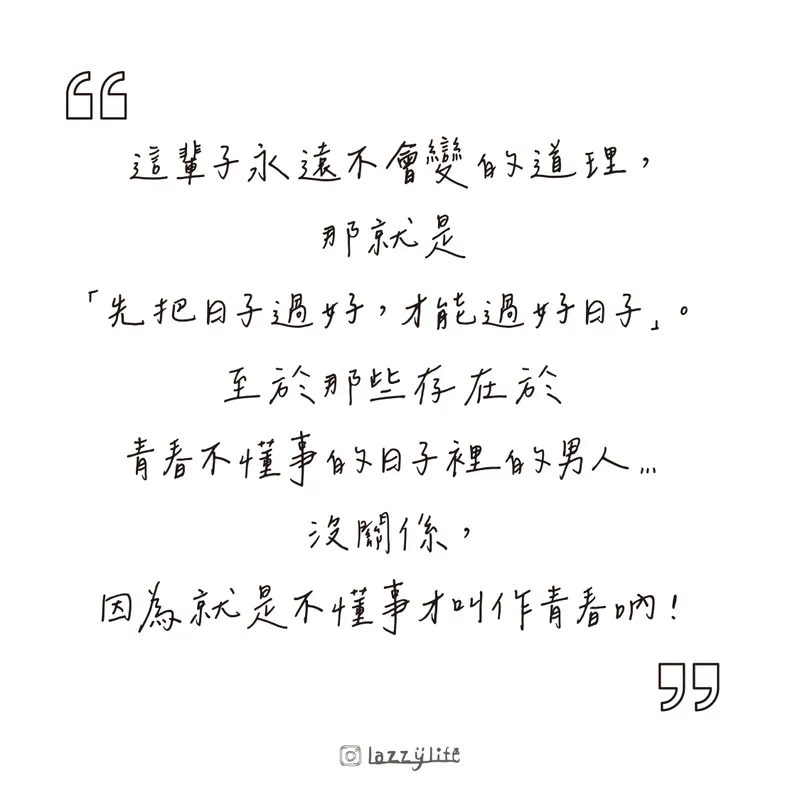 這輩子永遠不會變的道理，
那就是
「先把日子過好，才能過好日子」。
至於那些存在於
青春不懂事的日子裡的男人...
沒關係，
因為就是不懂事才叫作青春吶！
lazzylife